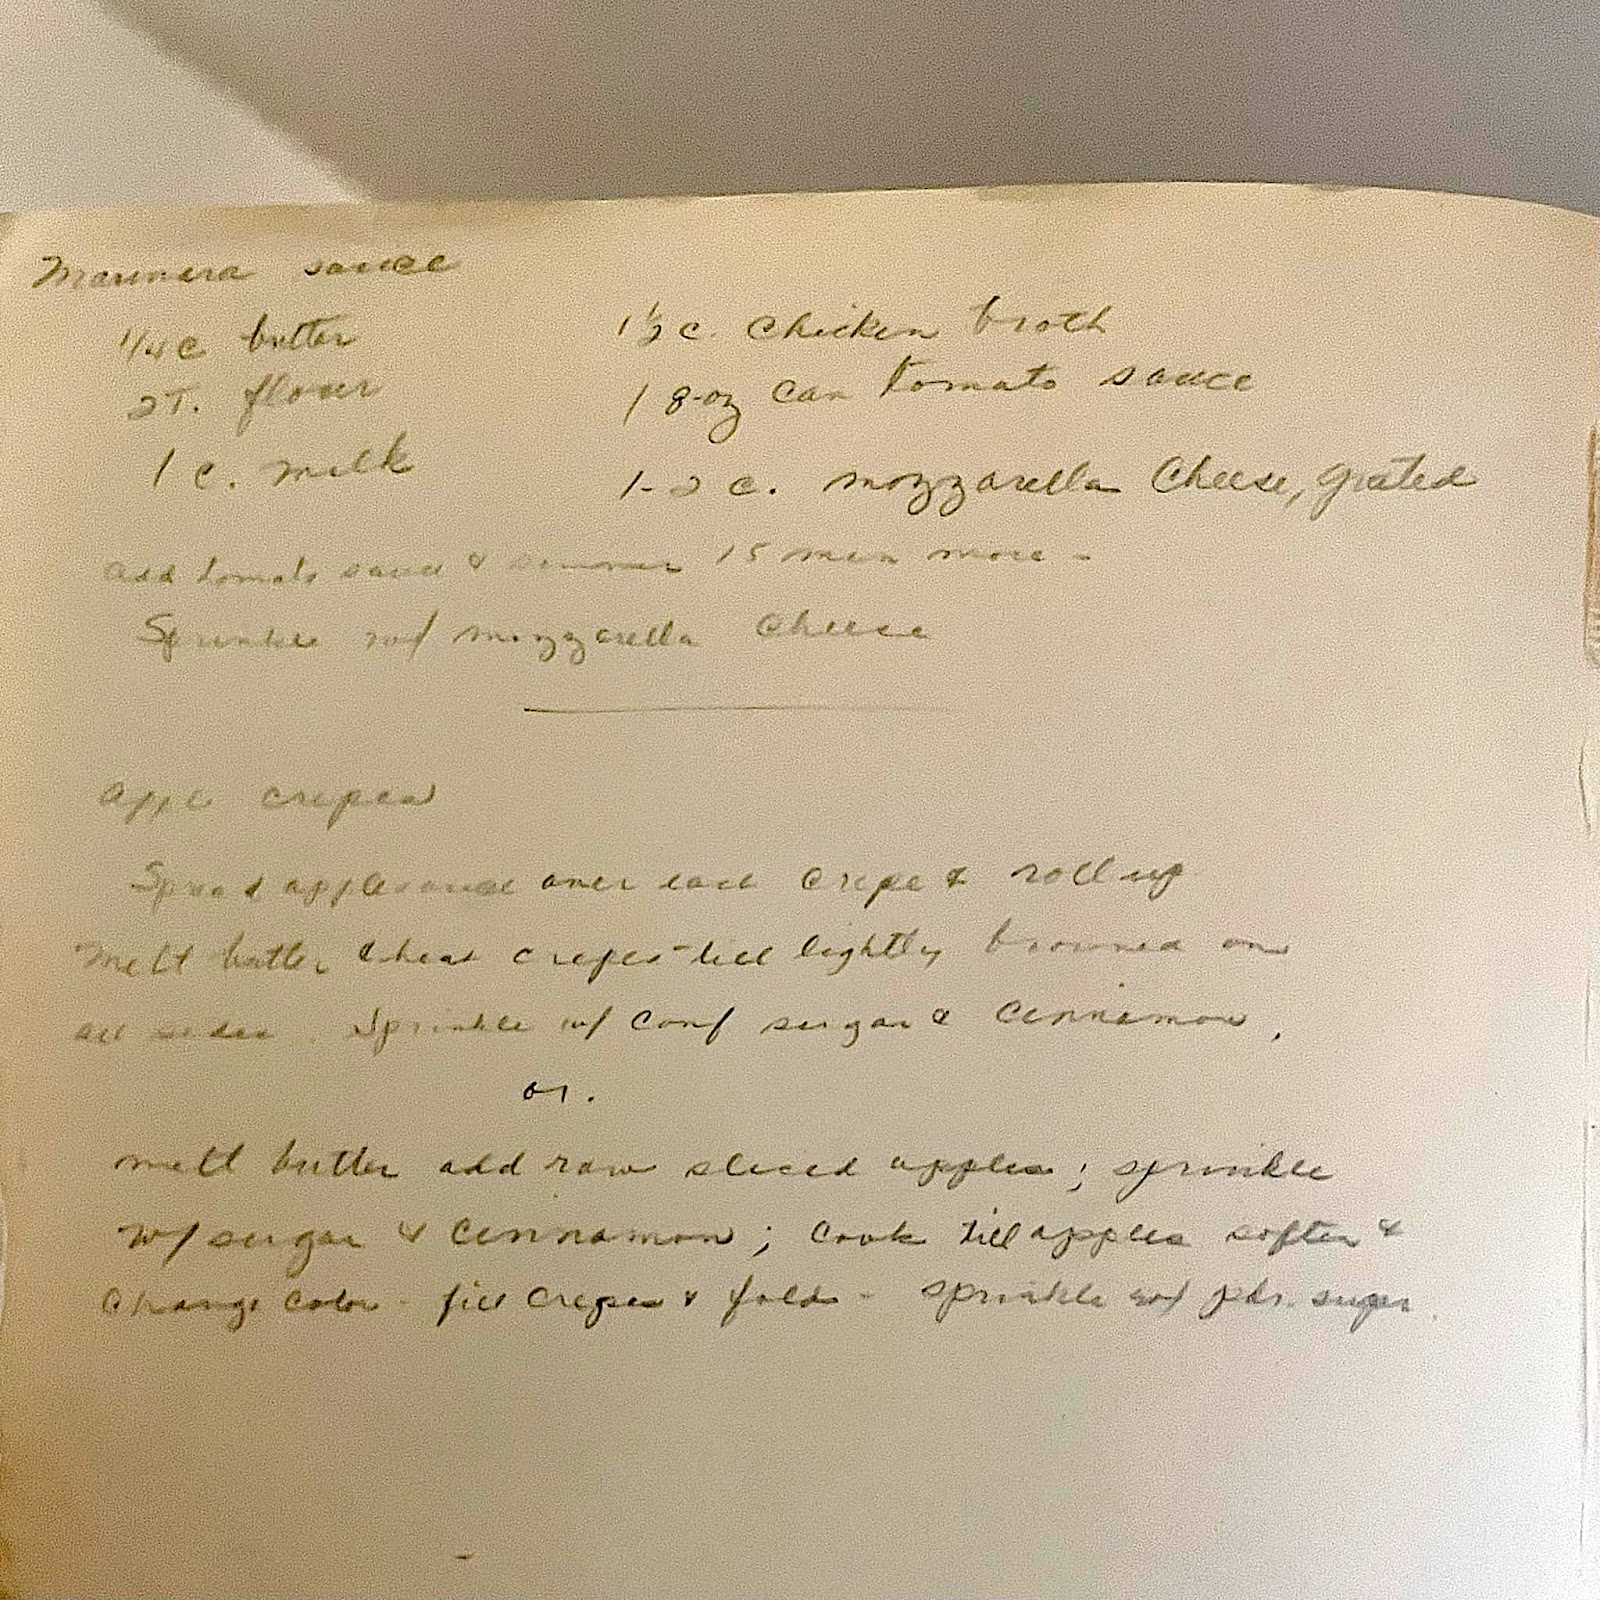 Marinera sauce
1/4 c butter
2 T. flour
1 c. milk
1 1/2 c. chicken broth
1 8-oz can tomato sauce
1-2 c. mozzarella cheese, grated
add tomato sauce & simmer 15 min more -
Sprinkle w/ mozzarella cheese
apple crepes
Spread applesauce over each crepe & roll up
Melt butter & heat crepes till lightly browned on
all sides. Sprinkle w/ conf sugar & cinnamon.
or.
melt butter add raw sliced apples; sprinkle
w/ sugar & cinnamon; cook till apples soften &
change color - fill crepes & fold - sprinkle w/ pdr. sugar.